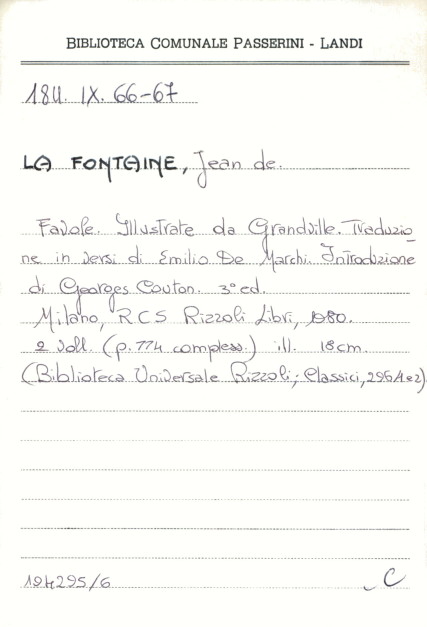 BIBLIOTECA COMUNALE PASSERINI - LANDI
18U. IX. 66-67
LA FONTAINE, Jean de.
Favole. Illustrate da Grandville. Traduzio
ne in versi di Emilio De Marchi. Introduzione
di Georges Couton. 3° ed.
Milano, RCS Rizzoli Libri, 1980.
2 voll. (p. 774 compless.) ill. 18cm.
(Biblioteca Universale Rizzoli; Classici, 296/1e2)
194295/6 C